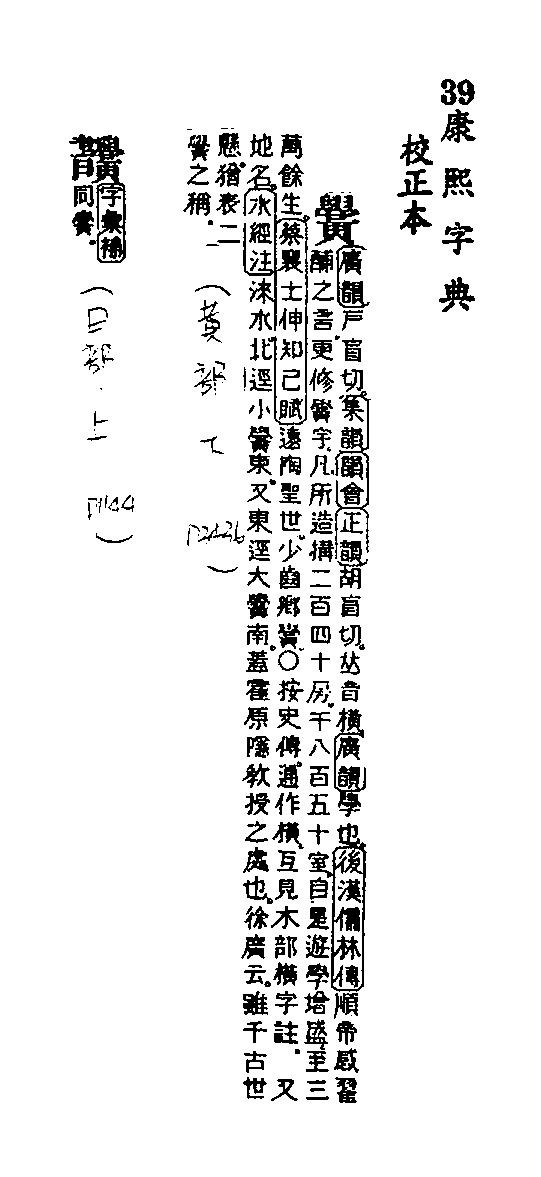 39康熙字典
校正本
黌廣韻戸盲切集韻韻會正韻胡盲切𠀤音橫廣韻學也後漢儒林傳順帝感翟
酺之言更修黌宇凡所造構二百四十房千八百五十室自是遊學增盛至三
萬餘生蔡襄士伸知己賦遠陶聖世少齒鄉黌○按史傳通作橫互見木部橫字註又
地名水經注淶水北逕小黌東又東逕大黌南蓋霍原隱教授之處也徐廣云雖千古世
懸猶表二
黌之稱
(黃部
P2426)
字彙補
同黌
(日部.上
P1144)